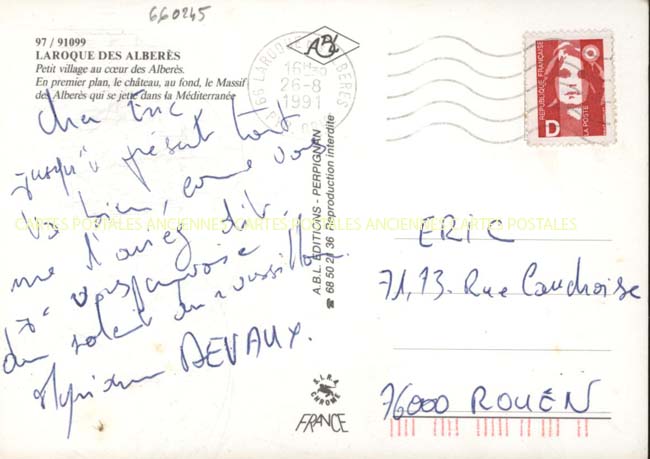 660245
97 / 91099
LAROQUE DES ALBERÈS
Petit village au cœur des Alberès.
En premier plan, le château, au fond, le Massif
des Alberès qui se jette dans la Méditerranée
ABL
66 LAROQUE DES ALBERES
16H
26-8
1991
REPUBLIQUE FRANÇAISE
D
LA POSTE
Cher Eric
jusqu'à présent tout
va bien, comme vous
me l'aviez dit.
Je vous envoie
du soleil du roussillon
DEVAUX.
CARTES POSTALES ANCIENNES CARTES POSTALES ANCIENNES CARTES POSTALES
A.B.L. EDITIONS - PERPIGNAN
☎ 68 50 21 36 Reproduction interdite
S.L.R.A.
CHROME
FRANCE
ERIC
71, 73. Rue Cauchoise
76000 ROUEN